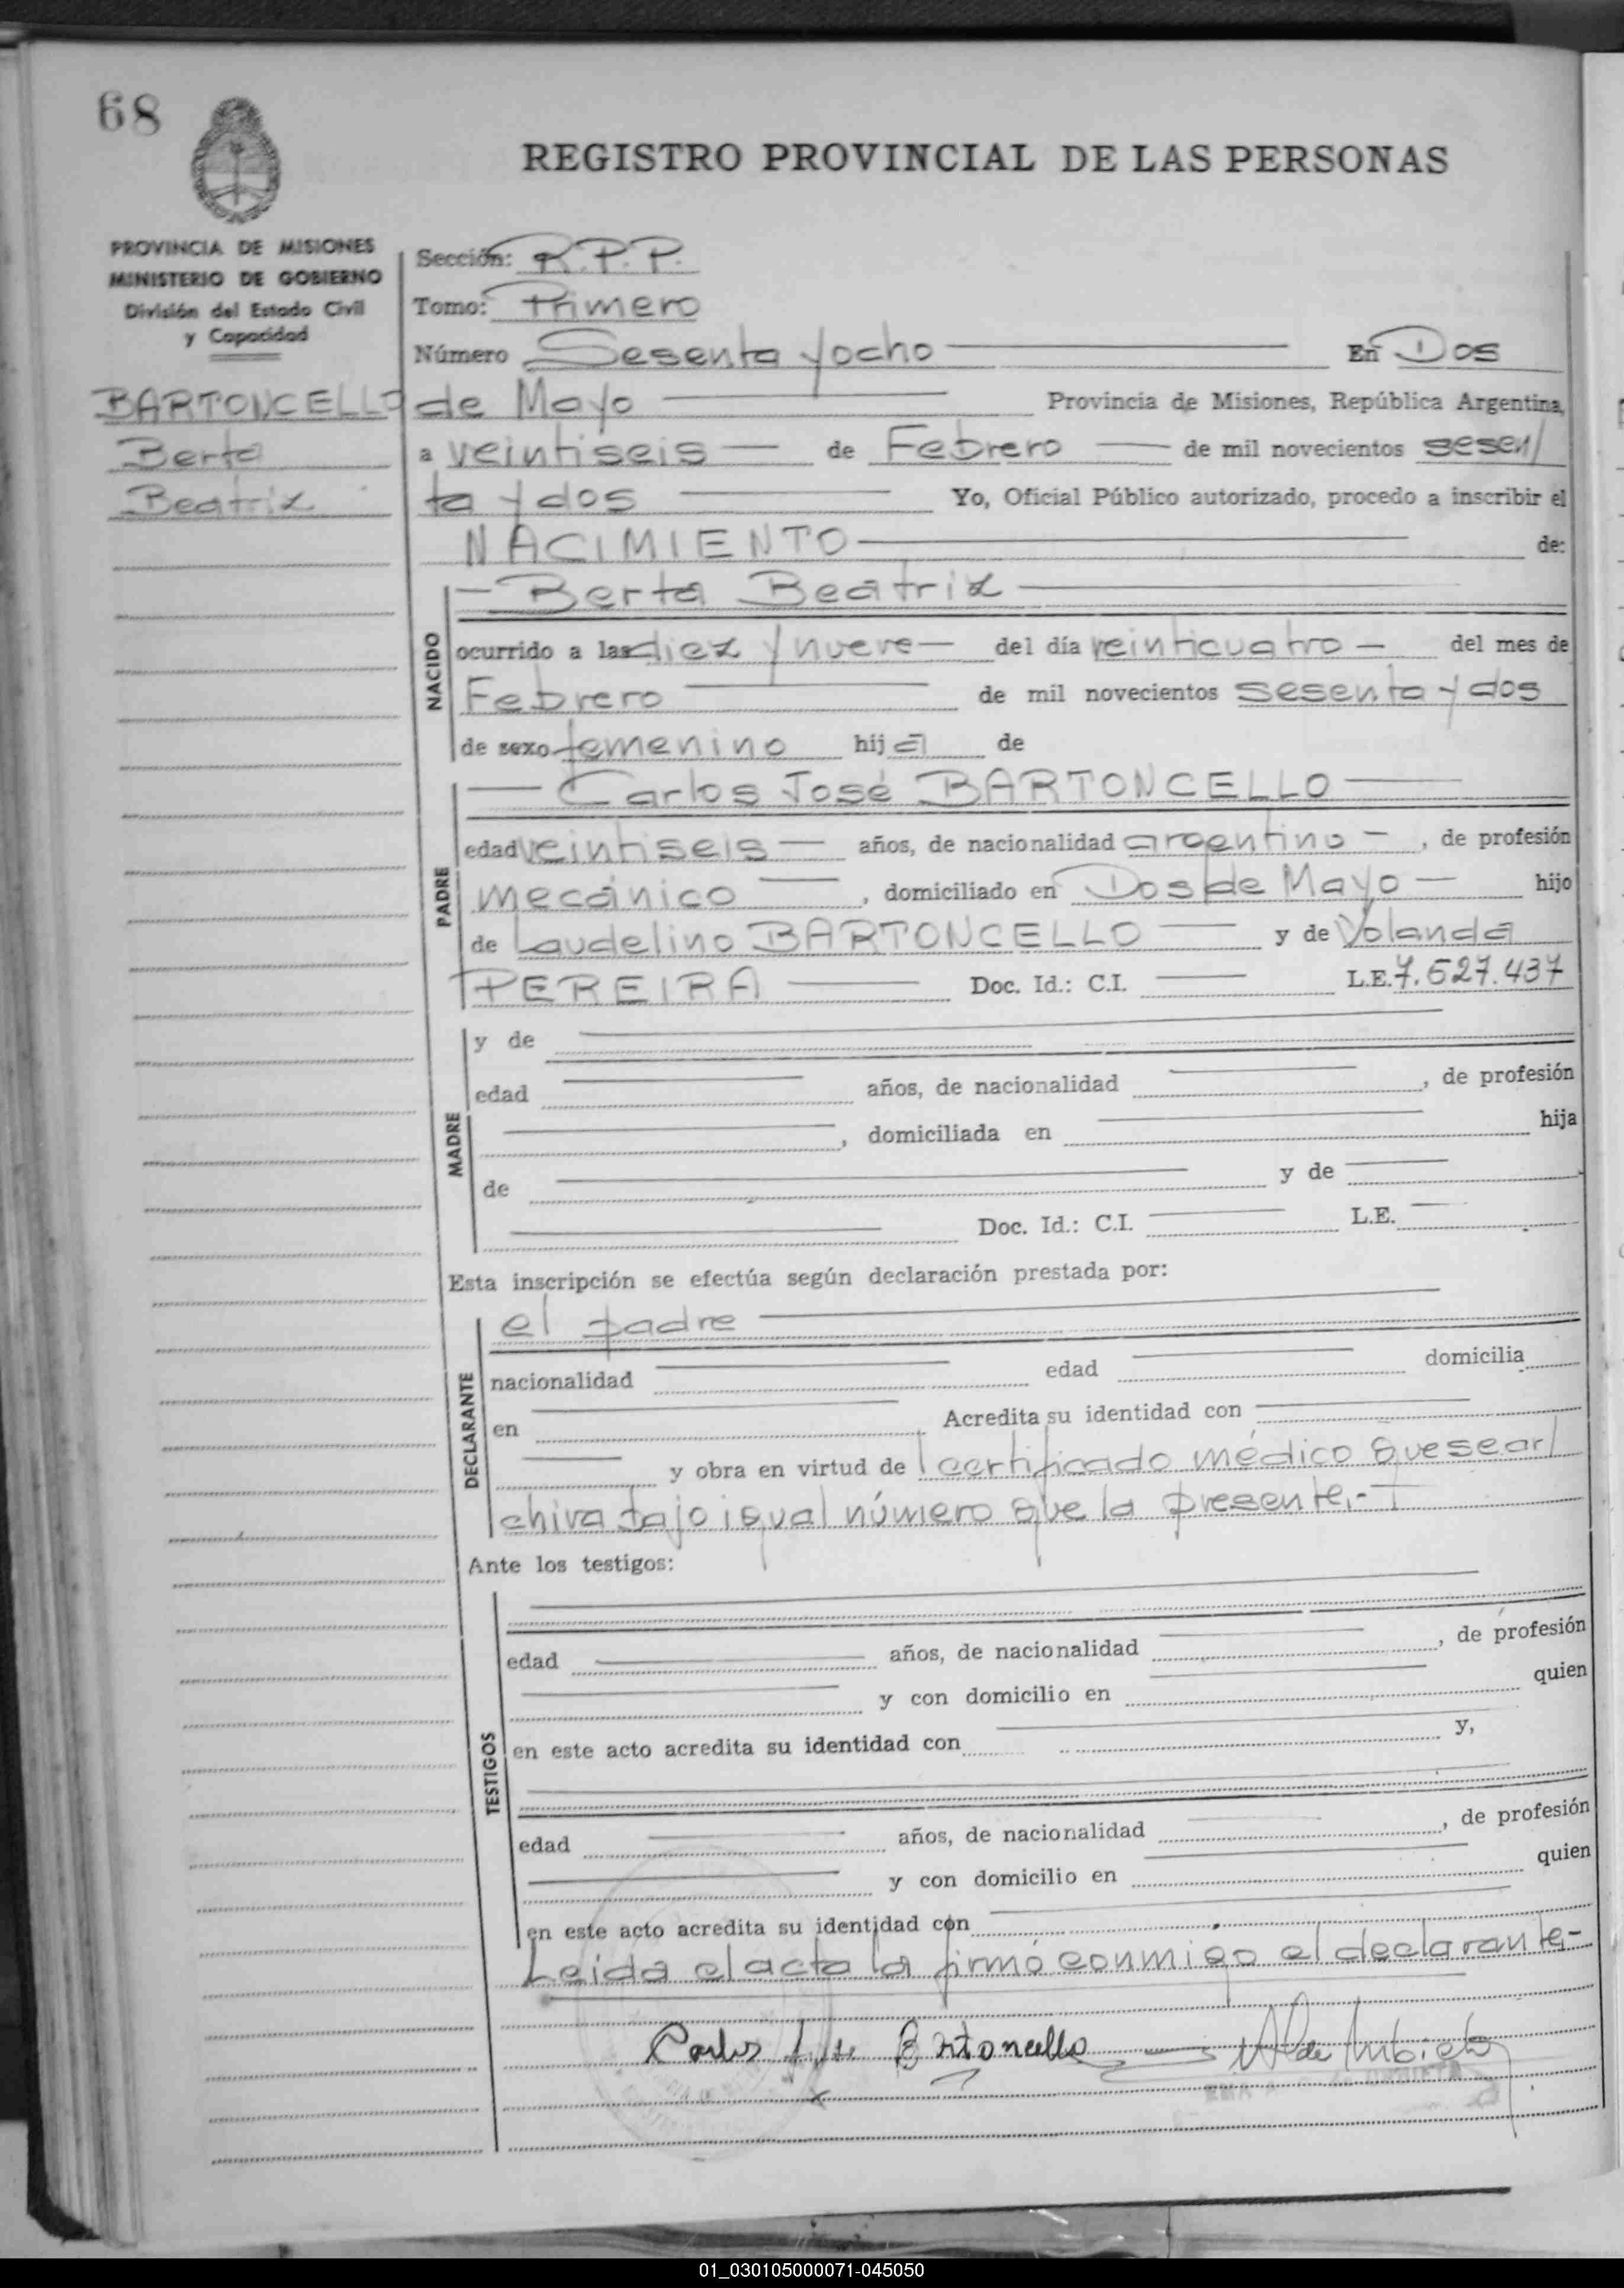 68
REGISTRO PROVINCIAL DE LAS PERSONAS
PROVINCIA DE MISIONES
MINISTERIO DE GOBIERNO
División del Estado Civil
y Capacidad
BARTONCELLO
Berta
Beatriz
Sección: R.P.P.
Tomo: Primero
Número Sesenta y ocho En Dos
de Mayo Provincia de Misiones, República Argentina,
a veintiseis de Febrero de mil novecientos sesen/
ta y dos Yo, Oficial Público autorizado, procedo a inscribir el
NACIMIENTO de:
NACIDO
Berta Beatriz
ocurrido a las diez y nueve del día veinticuatro del mes de
Febrero de mil novecientos sesenta y dos
de sexo femenino hija de
PADRE
Carlos José BARTONCELLO
edad veintiseis años, de nacionalidad argentino, de profesión
mecánico, domiciliado en Dos de Mayo hijo
de Laudelino BARTONCELLO y de Yolanda
PEREIRA Doc. Id.: C.I. L.E. 7.527.437
MADRE
y de
edad años, de nacionalidad , de profesión
, domiciliada en hija
de y de
Doc. Id.: C.I. L.E.
Esta inscripción se efectúa según declaración prestada por:
DECLARANTE
el padre
nacionalidad edad domicilia
en Acredita su identidad con
y obra en virtud de certificado médico que se ar/
chiva bajo igual número que la presente.-
Ante los testigos:
TESTIGOS
edad años, de nacionalidad , de profesión
y con domicilio en quien
en este acto acredita su identidad con y,
edad años, de nacionalidad , de profesión
y con domicilio en quien
en este acto acredita su identidad con
Leida el acta la firmó conmigo el declarante.-
Carlos José Bartoncello
01_030105000071-045050